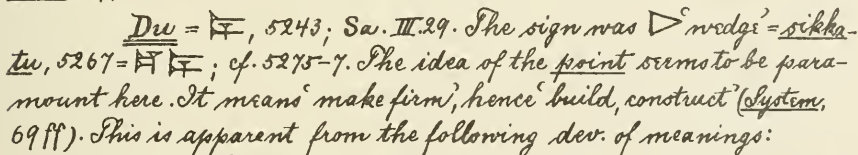 Du = 𒆕, 5243; Sa. III.29. The sign was ▷ 'wedge' = sikka-
tu, 5267 = 𒄑 𒆕; cf. 5275-7. The idea of the point seems to be para-
mount here. It means 'make firm', hence 'build, construct' (System,
69ff). This is apparent from the following dev. of meanings: